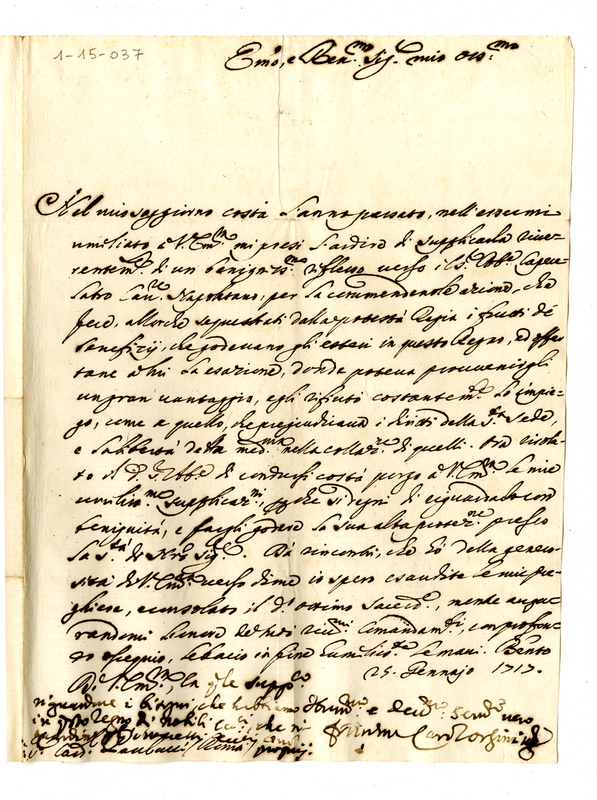 1-15-037
Emõ, e Ren.mo Sig.r mio Oss.mo
Nel mio soggiorno costà l'anno passato, nell'essermi
umiliato à V. Em.za mi presi l'ardire di supplicarla rive-
rentem.te di un benignis.mo riflesso verso il S.r Abb.e Capece
latro Can.co Napoletano, per la commendevole azione, che
fece, allorche sequestrati dalla potestà Regia i frutti de
beneficij, che godevano gli esteri in questo Regno, ed offer
tane à lui la esazione, donde poteva provenirgli
un gran vantaggio, egli rifiutò costantem.te lo impie-
go, come a quello, che pregiudicava i diritti della S.ta Sede,
e la libertà della med.ma nella collaz.ne di quelli. Ora risolu-
to il d.o S.r Abb.e di condursi costà porgo à V. Em.za le mie
umilis.me supplicaz.ni, perche si degni di riguardarlo con
benignità, e fargli godere la sua alta protez.ne presso
la S.tà di N.ro Sig.re. Dà riscontri, che hò della genero-
sità di V. Em.za verso di me io spero esaudite le mie pre-
ghiere, e consolato il d.o ottimo Sacerd.e, mentre augu-
randomi l'onore de' suoi riv.mi comandam.ti, con profon-
do ossequio, le bacio in fine umilm.te le mani. Bentõ
25. Gennajo 1717.
D. V. Em.za, la q.le supp.co
riguardare i bisogni, che habbiamo
in q.sto Regno di nobili che
Umil.mo e dev.mo Serv.re vero
Card. Orsini
S.r Card. Paulucci Roma